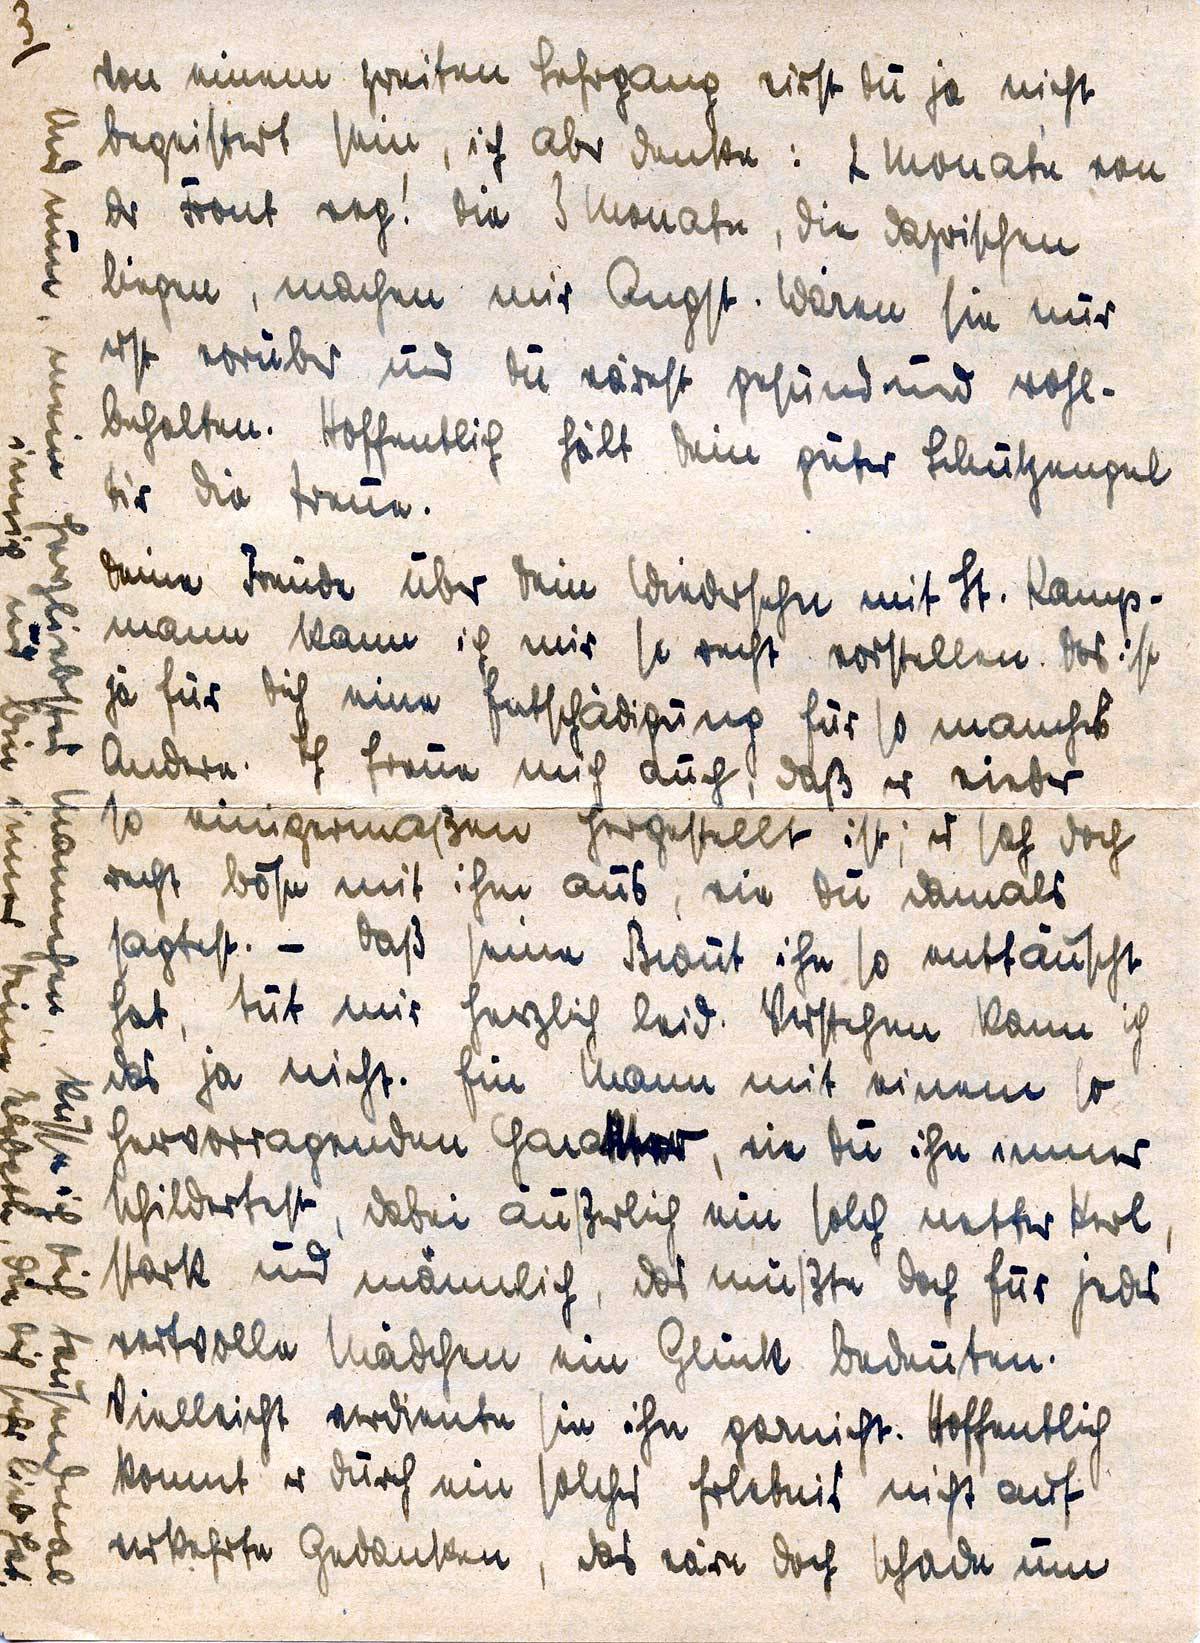 Von einem zweiten Lehrgang wirst du ja nicht
begeistert sein, ich aber denke: 2 Monate von
der Front weg! Die 3 Monate, die dazwischen
liegen, machen mir Angst. Wären sie nur
erst vorüber und du wärest gesund und wohl-
behalten. Hoffentlich hält dein guter Schutzengel
dir die Treue.
Deine Freude über dein Wiedersehn mit Lt. Kamp-
mann kann ich mir so recht vorstellen. Das ist
ja für dich eine Entschädigung für so manches
Andere. Ich freue mich auch, daß er wieder
so einigermaßen hergestellt ist; es sah doch
recht böse mit ihm aus, wie du damals
sagtest. – Daß seine Braut ihn so enttäuscht
hat, tut mir herzlich leid. Verstehen kann ich
das ja nicht. Ein Mann mit einem so
hervorragenden Charakter, wie du ihn immer
schildertest, dabei äußerlich ein solch netter Kerl,
stark und männlich, das müßte doch für jedes
wertvolle Mädchen ein Glück bedeuten.
Vielleicht verdiente sie ihn garnicht. Hoffentlich
kommt er durch ein solches Erlebnis nicht auf
verkehrte Gedanken, das wäre doch schade um
Und nun, mein herzliebstes Mannchen, küsse ich dich tausendmal
innig und bin immer deine Elsbeth, die dich sehr lieb hat.